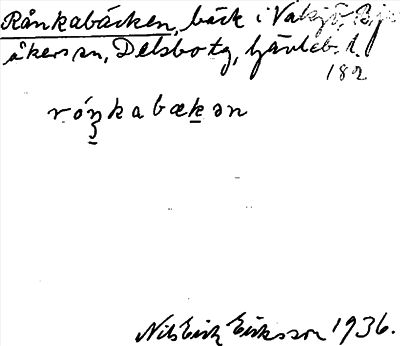 Rånkabäcken, bäck i Valsjö, Bj
åkers sn, Delsbo tg, Gävleb. l.
182
rónkabækən
Nils Erik Eriksson 1936.